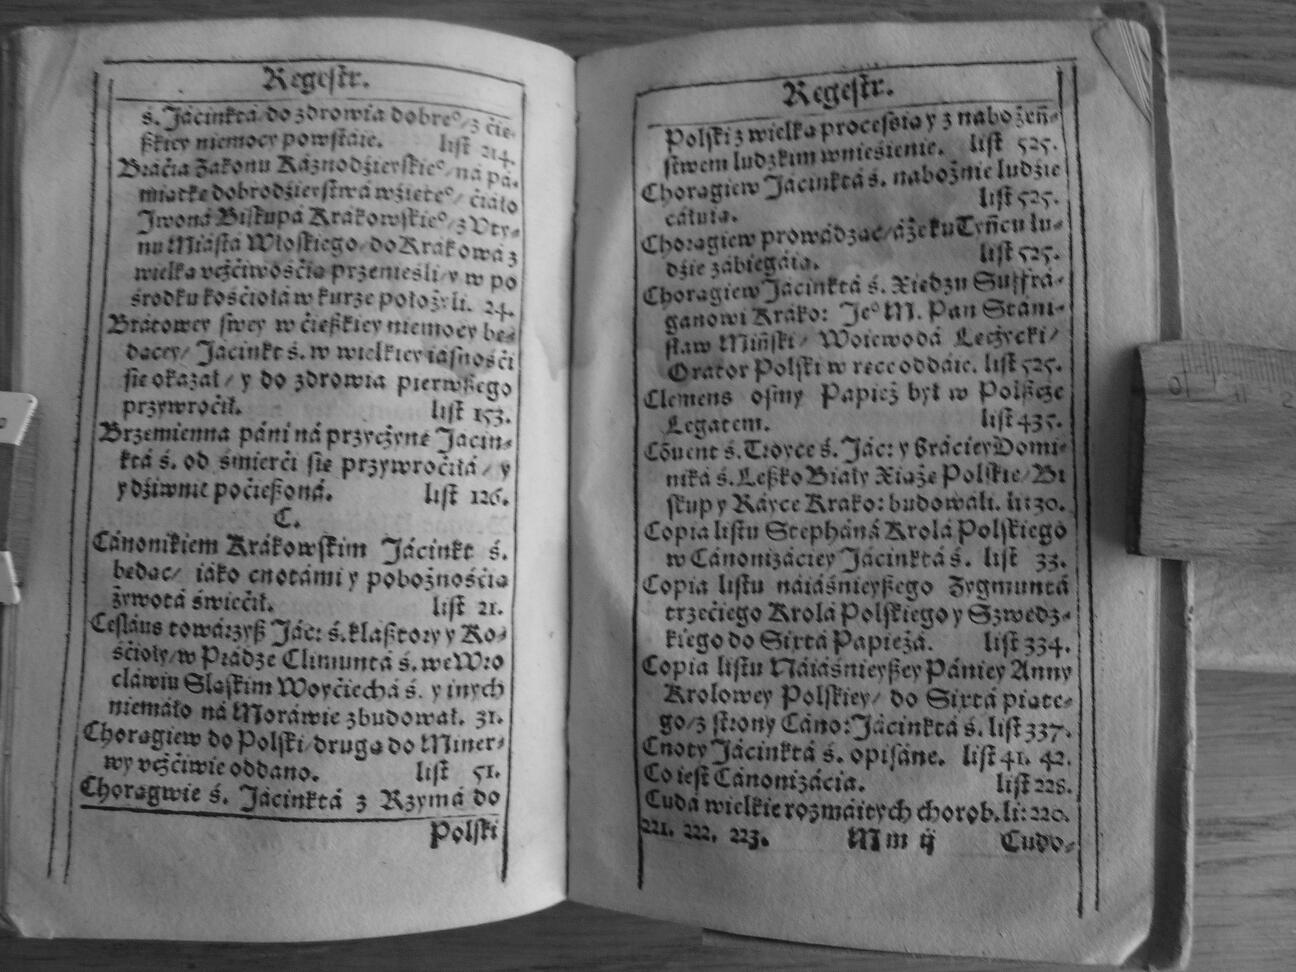 Regestr.
ś. Jácinktá/do zdrowia dobreº/z ćię-
ßkiey niemocy powstáie. list 214.
Bráćia Zakonu Káznodźieyskieº/ná pá-
miątkę dobrodźieystwá wźięteº/ ćiáło
Jwoná Biskupá Krákowskieº/z Vty-
nu Miástá Włoskiego/do Krákowá z
wielką vcżćiwośćią przenieśli/y w po
środku kośćiołá w kurze położyli. 24.
Brátowey swey w ćięßkiey niemocy bę-
dącey/ Jácinkt ś. w wielkiey iásnośći
się okazał/ y do zdrowia pierwßego
przywroćił. list 153.
Brzemienna páni ná przycżynę Jácin-
ktá ś. od śmierći się przywroćiłá/ y
y dźiwnie poćießoná. list 126.
C.
Cánonikiem Krákowskim Jácinkt ś.
będąc/ iáko cnotámi y pobożnośćią
żywotá świećił. list 21.
Ceslaus towárzyß Jác: ś. klaßtory y Ko-
śćioły/w Prádze Climuntá ś. we Wro
cláwiu Sląskim Woyćiechá ś. y inych
niemáło ná Moráwie zbudował. 31.
Chorągiew do Polski/druga do Miner-
wy vcżćiwie oddano. list 51.
Chorągwie ś. Jácinktá z Rzymá do
Polski
Regestr.
Polski z wielką processią y z nabożeñ-
stwem ludzkim wnieśienie. list 525.
Chorągiew Jácinktá ś. nabożnie ludźie
cáłuią. list 525.
Chorągiew prowádząc/áże ku Tyñcu lu-
dźie zábiegáią. list 525.
Chorągiew Jácinktá ś. Xiędzu Suffra-
ganowi Kráko: Jeº M. Pan Stáni-
sław Miñski/ Woiewodá Łęcżycki/
Orator Polski w ręce oddáie. list 525.
Clemens osmy Papież był w Polßcże
Legatem. list 435.
Cõuent ś. Troyce ś. Jác: y bráciey Domi-
niká ś. Leßko Biały Xiążę Polskie/Bi
skup y Ráyce Krako: budowáli. li: 30.
Copia listu Stepháná Krolá Polskiego
w Cánonizáciey Jácinktá ś. list 33.
Copia listu náiáśnieyßego Zygmuntá
trzećiego Krolá Polskiego y Szwedz-
kiego do Sixtá Papieżá. list 334.
Copia listu Náiáśnieyßey Pániey Anny
Krolowey Polskiey/ do Sixtá piąte-
go/z strony Cáno: Jácinktá ś. list 337.
Cnoty Jácinktá ś. opisáne. list 41. 42.
Co iest Cánonizácia. list 228.
Cudá wielkie rozmáitych chorob. li: 220.
221. 222. 223. Mm ij Cudo-